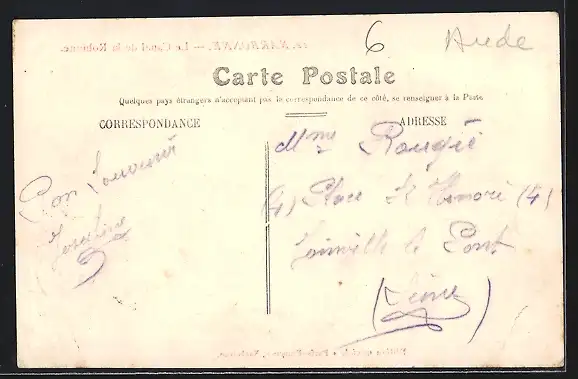 6 Aude
NARBONNE. — Le Canal de la Robine.
Carte Postale
Quelques pays étrangers n'acceptant pas la correspondance de ce côté, se renseigner à la Poste
CORRESPONDANCE
ADRESSE
Bon Souvenir
Mme Rougié
(4) Place St Honoré (4)
Joinville le Pont
(Seine)